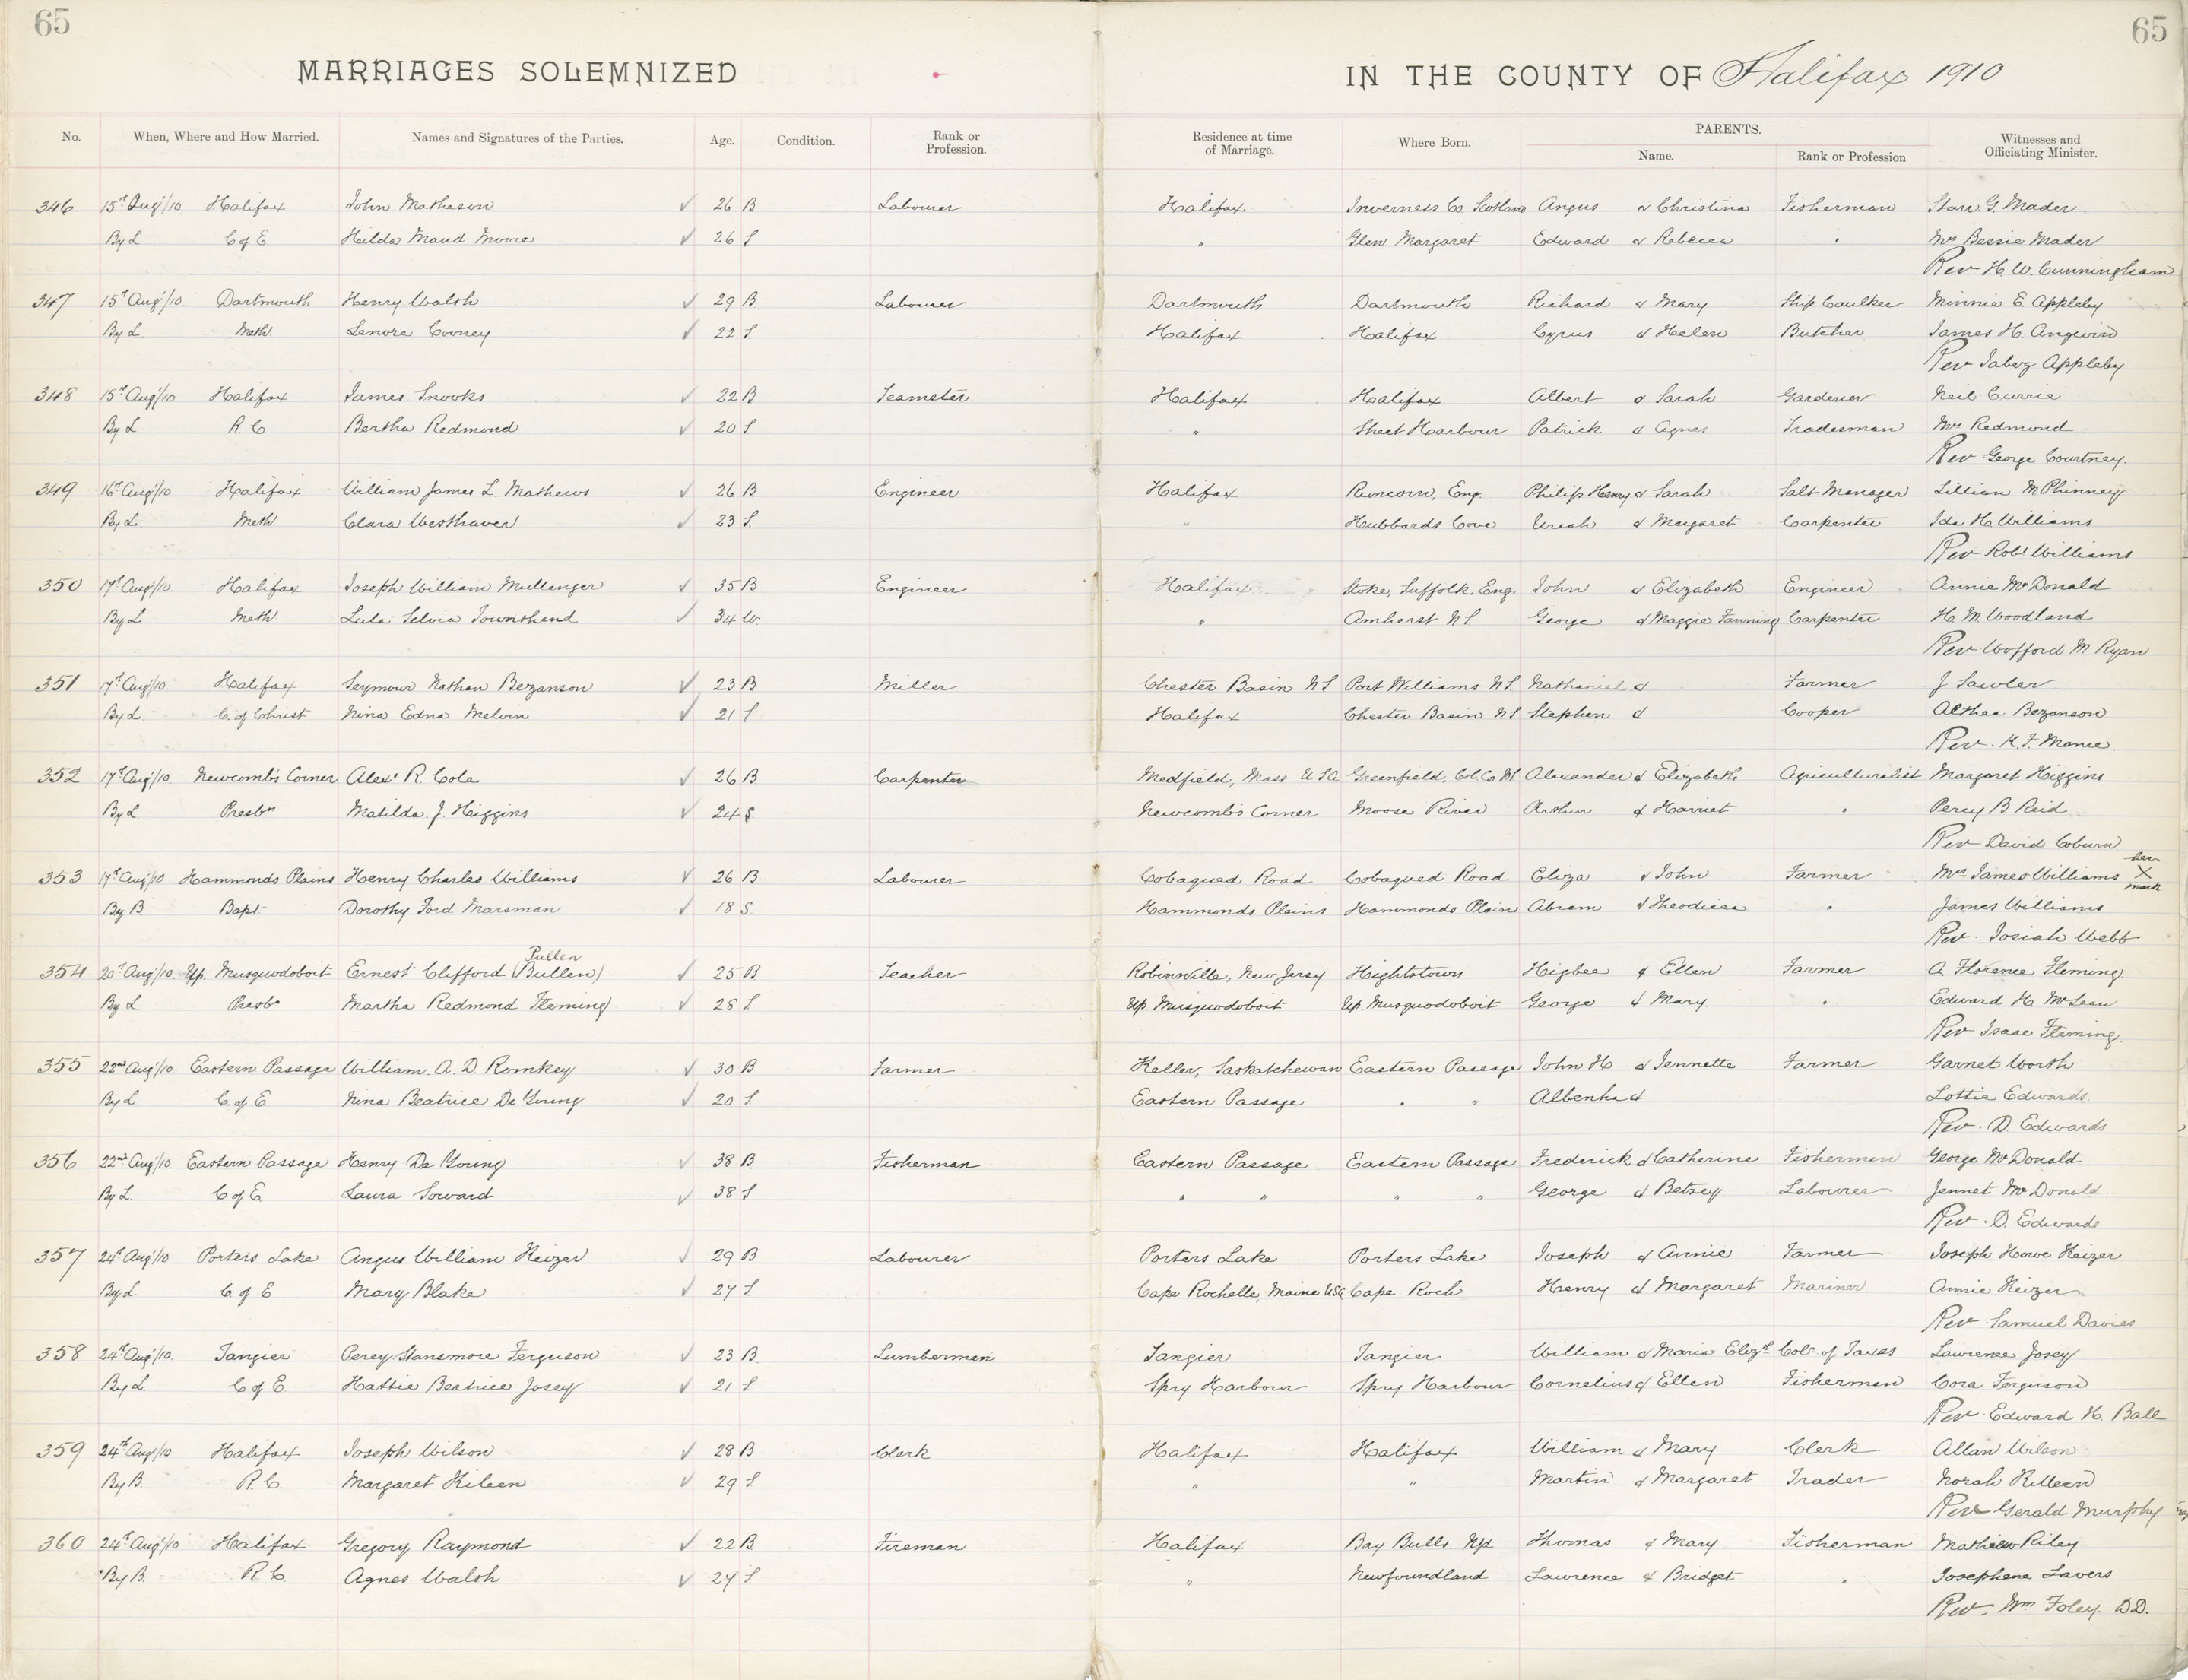 65 65
MARRIAGES SOLEMNIZED IN THE COUNTY OF Halifax 1910
No. When, Where and How Married. Names and Signatures of the Parties. Age. Condition. Rank or Profession. Residence at time of Marriage. Where Born. PARENTS. Name. Rank or Profession Witnesses and Officiating Minister.
346 15th Aug/10 Halifax John Matheson ✓ 26 B Labourer Halifax Inverness Co Scotland Angus & Christina Fisherman Starr G. Mader
By L C of E Hilda Maud Moore ✓ 26 S " Glen Margaret Edward & Rebecca " Mrs Bessie Mader
Rev H. W. Cunningham
347 15th Aug/10 Dartmouth Henry Walsh ✓ 29 B Labourer Dartmouth Dartmouth Richard & Mary Ship Caulker Minnie E. Appleby
By L Meth Lenore Cooney ✓ 22 S Halifax Halifax Cyrus & Helen Butcher James H. Angwin
Rev Jabez Appleby
348 15th Aug/10 Halifax James Snooks ✓ 22 B Teamster Halifax Halifax Albert & Sarah Gardener Neil Currie
By L R. C Bertha Redmond ✓ 20 S " Sheet Harbour Patrick & Agnes Tradesman Mrs Redmond
Rev George Courtney.
349 16th Aug/10 Halifax William James L. Mathews ✓ 26 B Engineer Halifax Runcorn, Eng. Philip Henry & Sarah Salt Manager Lillian McPhinney
By L. Meth Clara Westhaver ✓ 23 S. " Hubbards Cove Uriah & Margaret Carpenter Ida H. Williams
Rev Robt Williams
350 17th Aug/10 Halifax Joseph William Mullenger ✓ 35 B Engineer Halifax Stoke, Suffolk, Eng. John & Elizabeth Engineer Annie McDonald
By L Meth Lula Selvia Townshend ✓ 34 W. " Amherst N S George & Maggie Fanning Carpenter H. M. Woodland
Rev Wofford M Ryan
351 17th Aug/10 Halifax Seymour Nathan Bezanson ✓ 23 B Miller Chester Basin N S Port Williams N S. Nathaniel & Farmer J Lawler
By L C. of Christ Nina Edna Melvin ✓ 21 S Halifax Chester Basin N S Stephen & Cooper Althea Bezanson
Rev. K. F. Mance
352 17th Aug/10 Newcomb's Corner Alexr R. Cole ✓ 26 B Carpenter Medfield, Mass U.S.A Greenfield, Col. Co. NS Alexander & Elizabeth Agriculturalist Margaret Higgins
By L Presbn Matilda J. Higgins ✓ 24 S. Newcomb's Corner Moose River Arthur & Harriet " Percy B Reid
Rev David Coburn
353 17th Aug/10 Hammonds Plains Henry Charles Williams ✓ 26 B Labourer Cobaquad Road Cobaqued Road Eliza & John Farmer Mrs James Williams her X mark
By B Bapt. Dorothy Ford Marsman ✓ 18 S. Hammonds Plains Hammonds Plains Abram & Theodicea " James Williams
Rev. Josiah Webb
Pullen
354 20th Aug/10 Up. Musquodoboit Ernest Clifford (Bullen) ✓ 25 B Teacher Robinsville, New Jersy Hightstown Higbee & Ellen Farmer A Florence Fleming
By L Presbn Martha Redmond Fleming ✓ 28 S Up. Musquodoboit Up. Musquodoboit George & Mary " Edward H. McLean
Rev Isaac Fleming.
355 22nd Aug/10 Eastern Passage William. A. D. Romkey ✓ 30 B Farmer Keller, Saskatchewan Eastern Passage John H & Jennette Farmer Garnet Worth
By L C. of E Nina Beatrice De Young ✓ 20 S. Eastern Passage " " Albenha & Lottie Edwards.
Rev. D. Edwards
356 22nd Aug/10 Eastern Passage Henry De Young ✓ 38 B. Fisherman Eastern Passage Eastern Passage Frederick & Catherine Fisherman George McDonald
By L. C of E. Laura Soward ✓ 38 S " " " " George & Betsey Labourer Jennet McDonald
Rev. D. Edwards
357 24th Aug/10 Porters Lake Angus William Keizer ✓ 29 B Labourer Porters Lake Porters Lake Joseph & Annie Farmer Joseph Howe Keizer
By L. C. of E Mary Blake ✓ 27 S. Cape Rochelle, Maine USA Cape Roch Henry & Margaret Mariner Annie Keizer
Rev Samuel Davies
358 24th Aug/10. Tangier Percy Stansmore Ferguson ✓ 23 B. Lumberman Tangier Tangier William & Maria Elizth Colr of Taxes Lawrence Josey
By L. C of E Hattie Beatrice Josey ✓ 21 S Spry Harbour Spry Harbour Cornelius & Ellen Fisherman Cora Ferguson
Rev. Edward H. Ball
359 24th Aug/10 Halifax Joseph Wilson ✓ 28 B Clerk Halifax Halifax William & Mary Clerk Allan Wilson
By B. R. C. Margaret Kileen ✓ 29 S " " Martin & Margaret Trader Norah Killeen
Rev Gerald Murphy
360 24th Aug/10 Halifax Gregory Raymond ✓ 22 B. Fireman Halifax Bay Bulls. Nfld Thomas & Mary Fisherman Mathew Riley
By B. R. C. Agnes Walsh ✓ 27 S. " Newfoundland Lawrence & Bridget " Josephene Lavers
Rev. Wm Foley. D.D.